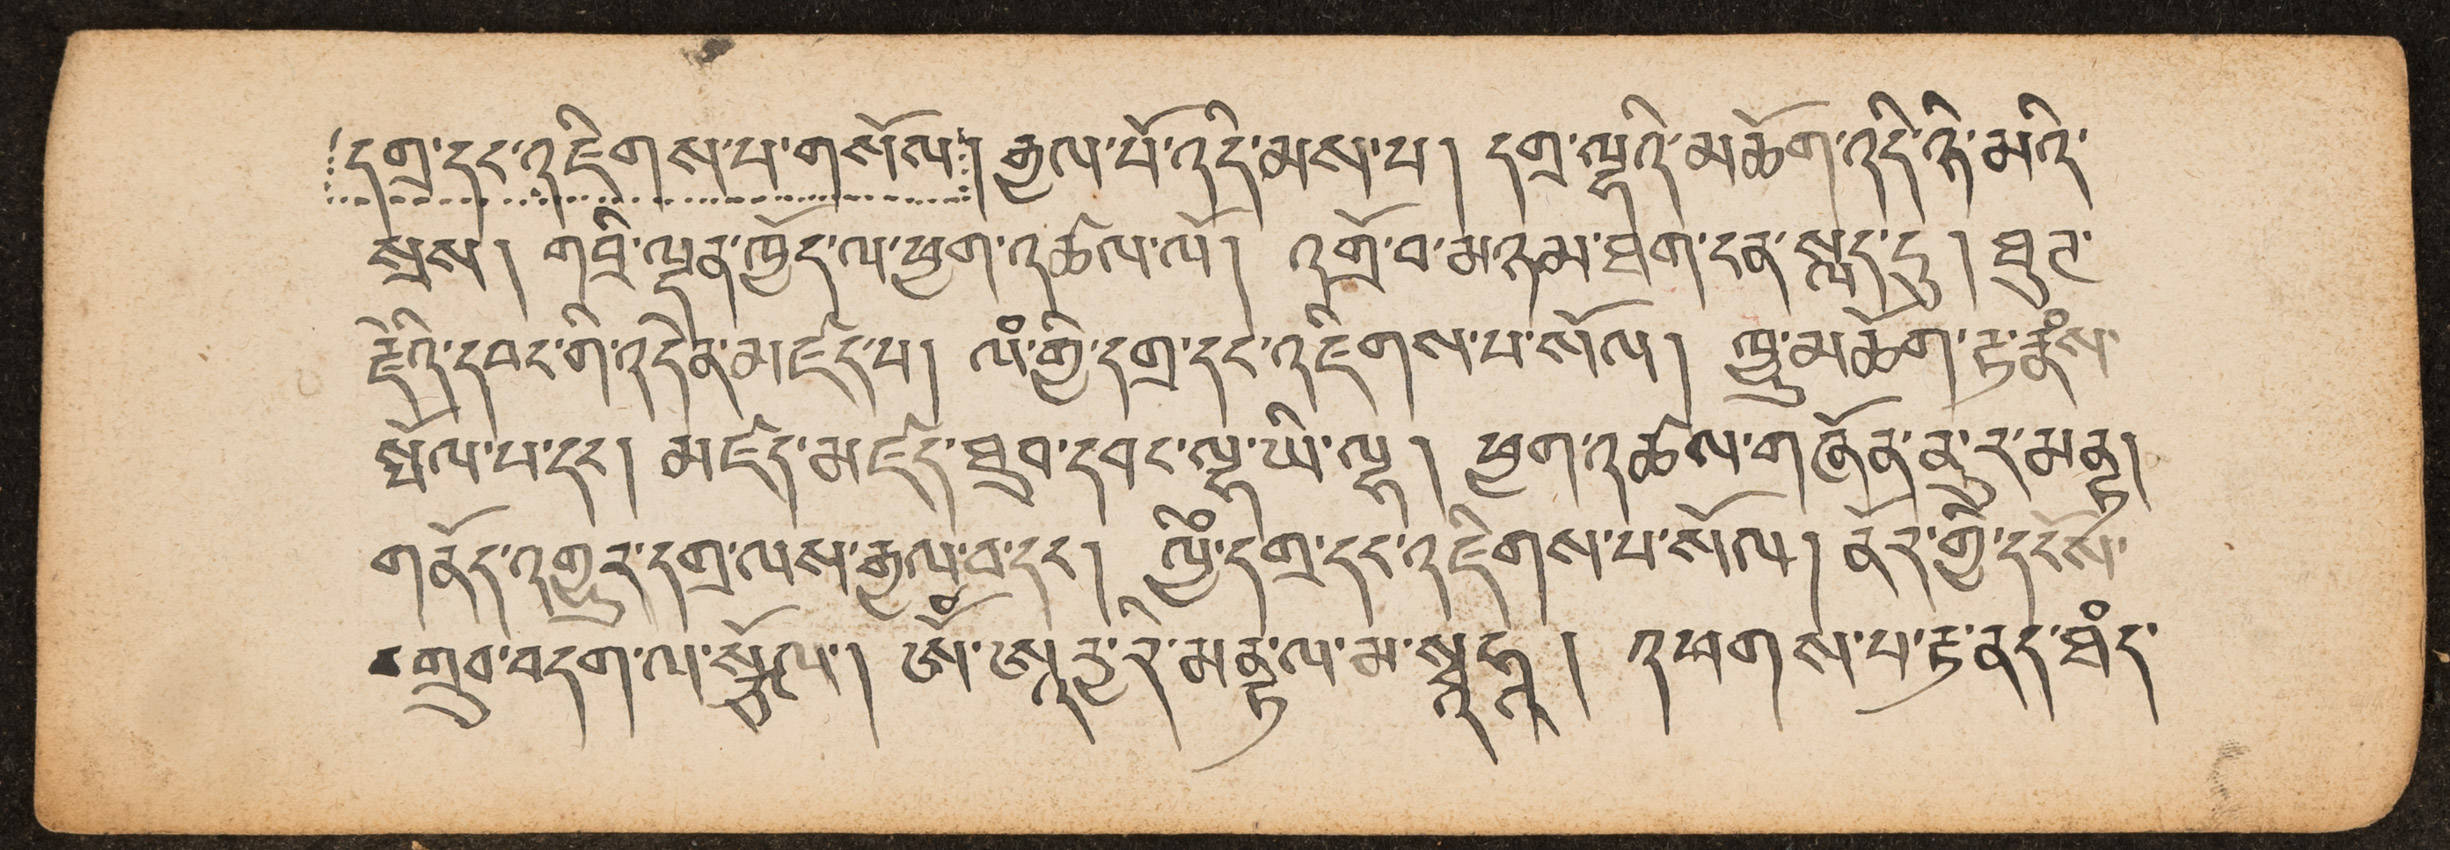 དགྲ་དང་འཇིགས་པ་གསོལ། རྒྱལ་པོ་འདི་མས་པ། དགྲ་ལྷའི་མཆོག་འདི་ཉི་མའི་
སྲས། གཟི་ལྡན་ཁྱོད་ལ་ཕྱག་འཚལ་ལོ། འགྲོ་བ་མཉམ་ཐག་དན་སླད་དུ། ཐུཊ་
རྗེའི་དབང་གི་འདྲེན་མཛད་པ། ལོཾ་གྱི་དགྲ་དང་འཇིགས་པ་སོལ། ཀླུ་མཆོག་རྟ་རྣཾས་
སྤེལ་པ་དང༌། མཛད་མཛད་ཐུབ་དབང་ལྷ་ཡི་ལྷ། ཕྱག་འཚལ་གཞོན་ནུ་ར་མནྟ།
གནོད་འགྱུར་དགྲ་ལས་རྒྱལ་བ་དང༌། ཀླིཾ་དགྲ་དང་འཇིགས་པ་སོལ། ནོར་གྱི་དངོས་
གྲུབ་བདག་ལ་སྩོལ། ཨོཾ་ཨཱརྱ་རེ་མནྟ་ལ་མ་སྭཱཧཱ། འཕགས་པ་རྟ་ནད་ཐཾད་